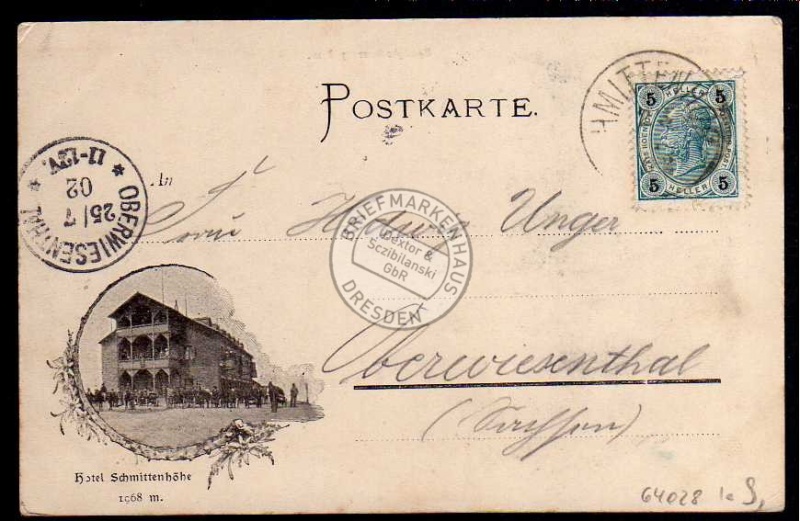 POSTKARTE.
HMITTEN
5 HELLER 5
5 HELLER 5
OBERWIESENTHAL
25/7
02
* 11-12V. *
An
Frau Hedwig Unger
BRIEFMARKENHAUS
Dextor &
Sczibilanski
GbR
DRESDEN
Oberwiesenthal
(Sachsen)
Hotel Schmittenhöhe
1968 m.
64028